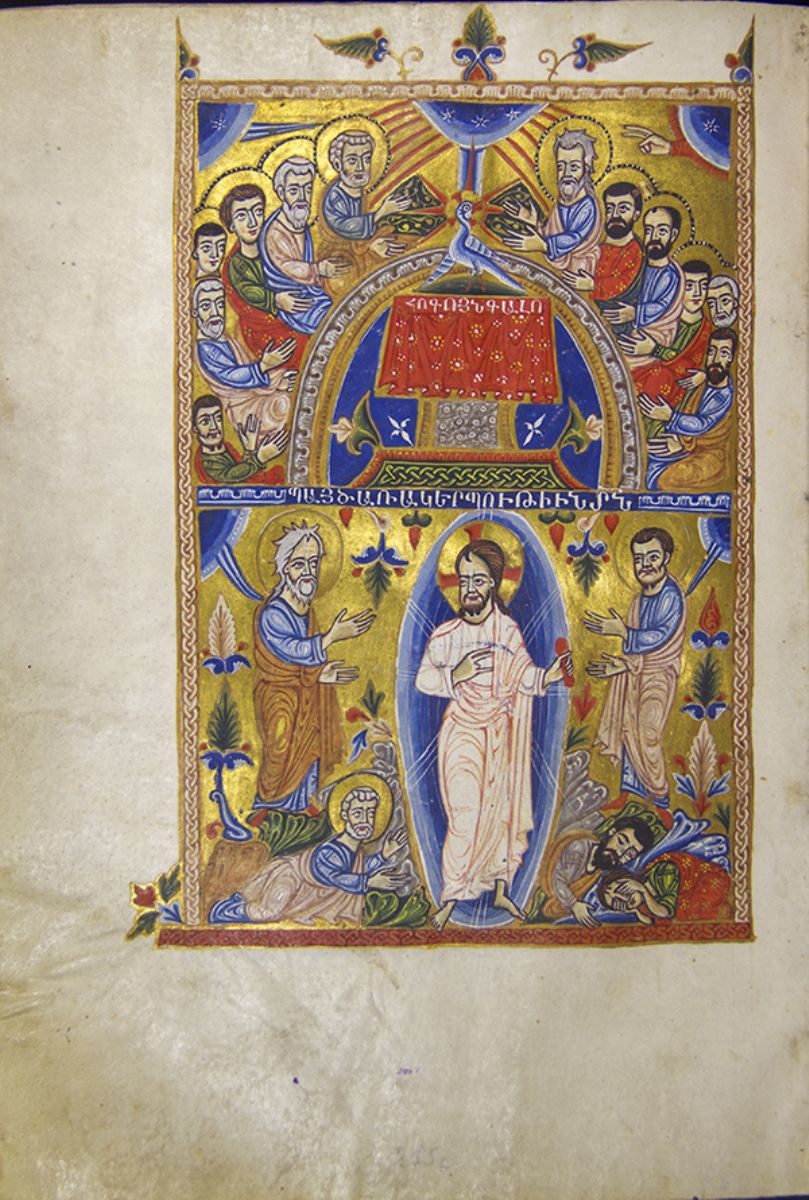 ՀՈԳՈՅՆԳԱԼՈ
ՊԱՅԾԱՌԱԿԵՐՊՈՒԹԻՒՆՆ